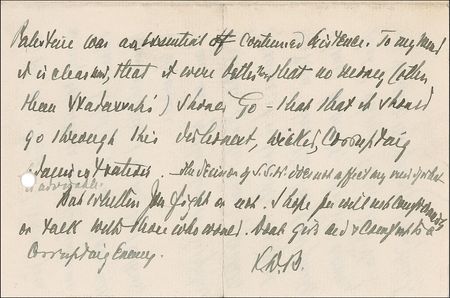 Palestine was an essential of continued existence. To my mind
it is clear and, that it were better, that no money (other
than Stadavski's) should go – than that it should
go through this dishonest, wicked, corrupting
administration. The decision of S.S.W. does not affect my mind of what
is advisable.
But whether you fight or not. I hope you will not compromise
or talk with those who would. Don't give aid & comfort to a
corrupting Enemy.